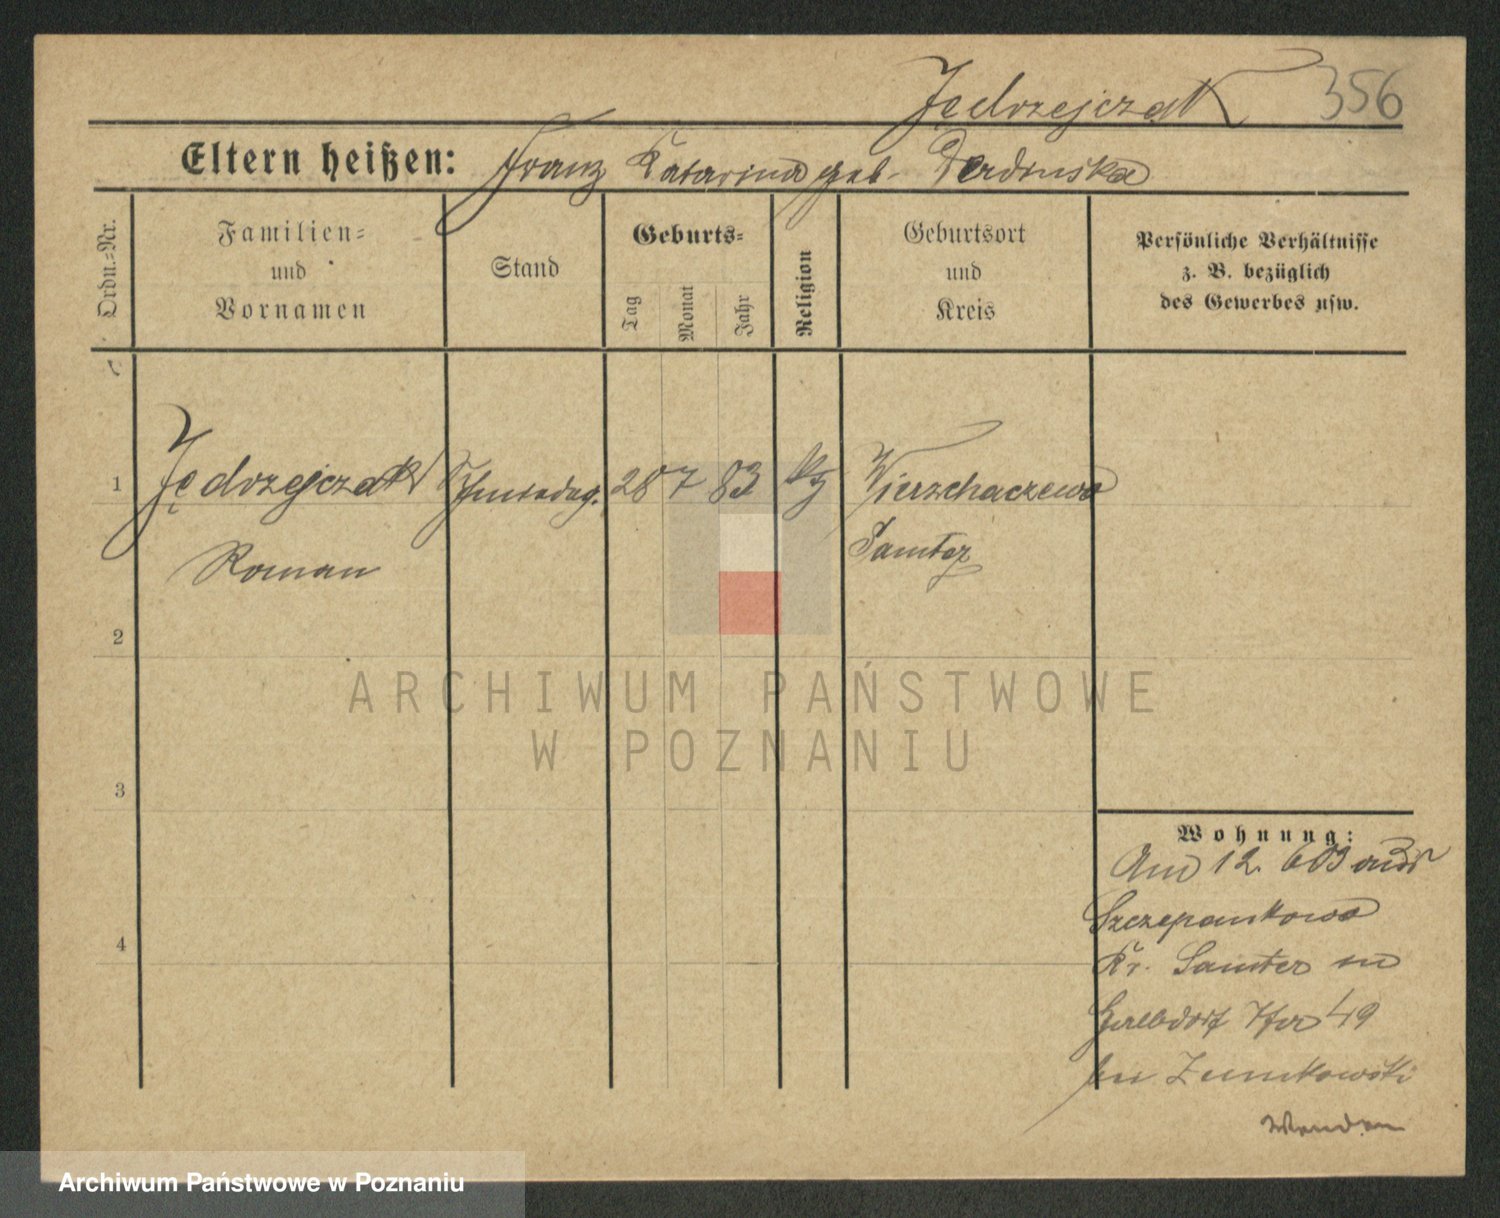 Jędrzejczak 356
Eltern heißen: Franz Katarina geb.
Ordn.=Nr.
Familien=
und
Vornamen
Stand
Geburts=
Tag
Monat
Jahr
Religion
Geburtsort
und
Kreis
Persönliche Verhältnisse
z. B. bezüglich
des Gewerbes usw.
1 Jędrzejczak 28 7 83 Wierzchaczewo
Roman Samter
2
ARCHIWUM PAŃSTWOWE
W POZNANIU
3
4
Wohnung:
Am 12. 6 03 aus
Szczepankowo
Kr. Samter in
49
bei
Wenden
Archiwum Państwowe w Poznaniu